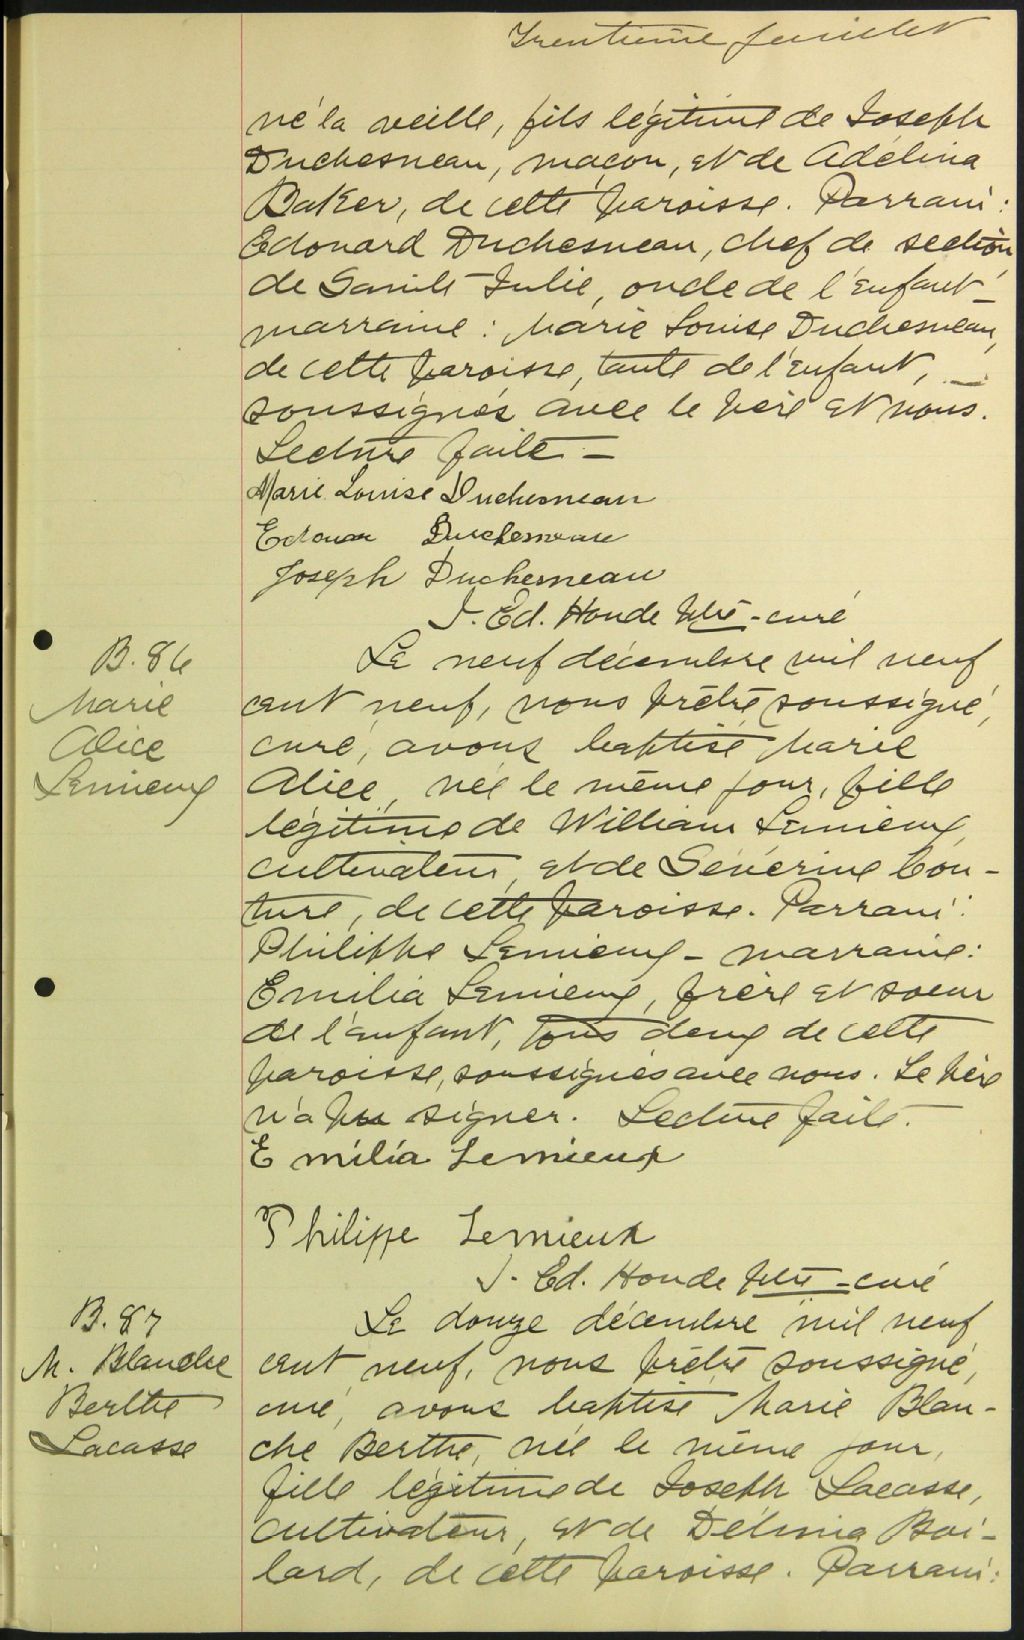 Trentième feuillet
né la veille, fils légitime de Joseph
Duchesneau, maçon, et de Adélina
Baker, de cette paroisse. Parrain :
Edouard Duchesneau, chef de section
de Sainte Julie, oncle de l'enfant -
marraine : Marie Louise Duchesneau,
de cette paroisse, tante de l'enfant, -
soussignés avec le père et nous.
Lecture faite -
Marie Louise Duchesneau
Edouar Duchesneau
Joseph Duchesneau
J. Ed. Houde ptre - curé
B. 86
Marie
Alice
Lemieux
Le neuf décembre mil neuf
cent neuf, nous prêtre soussigné,
curé, avons baptisé Marie
Alice, née le même jour, fille
légitime de William Lemieux,
cultivateur, et de Séverine Cou-
ture, de cette paroisse. Parrain :
Philippe Lemieux - marraine :
Emilia Lemieux, frère et soeur
de l'enfant, tous deux de cette
paroisse, soussignés avec nous. Le père
n'a pu signer. Lecture faite.
Emilia Lemieux
Philippe Lemieux
J. Ed. Houde ptre - curé
B. 87
M. Blanche
Berthe
Lacasse
Le douze décembre mil neuf
cent neuf, nous prêtre soussigné,
curé, avons baptisé Marie Blan-
che Berthe, née le même jour,
fille légitime de Joseph Lacasse,
cultivateur, et de Délinia Boi-
lard, de cette paroisse. Parrain :